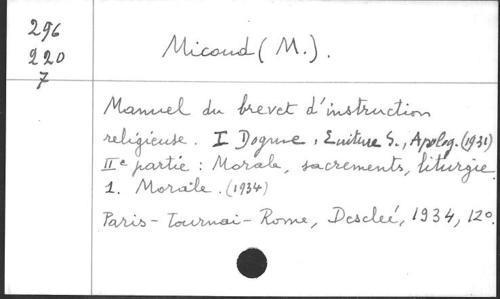 296
220
7
Micoud (M.).
Manuel du brevet d'instruction
religieuse. I Dogme, Ecriture S., Apolog. (1931)
IIe partie : Morale, sacrements, liturgie.
1. Morale. (1934)
Paris - Tournai - Rome, Desclée, 1934, 12o.